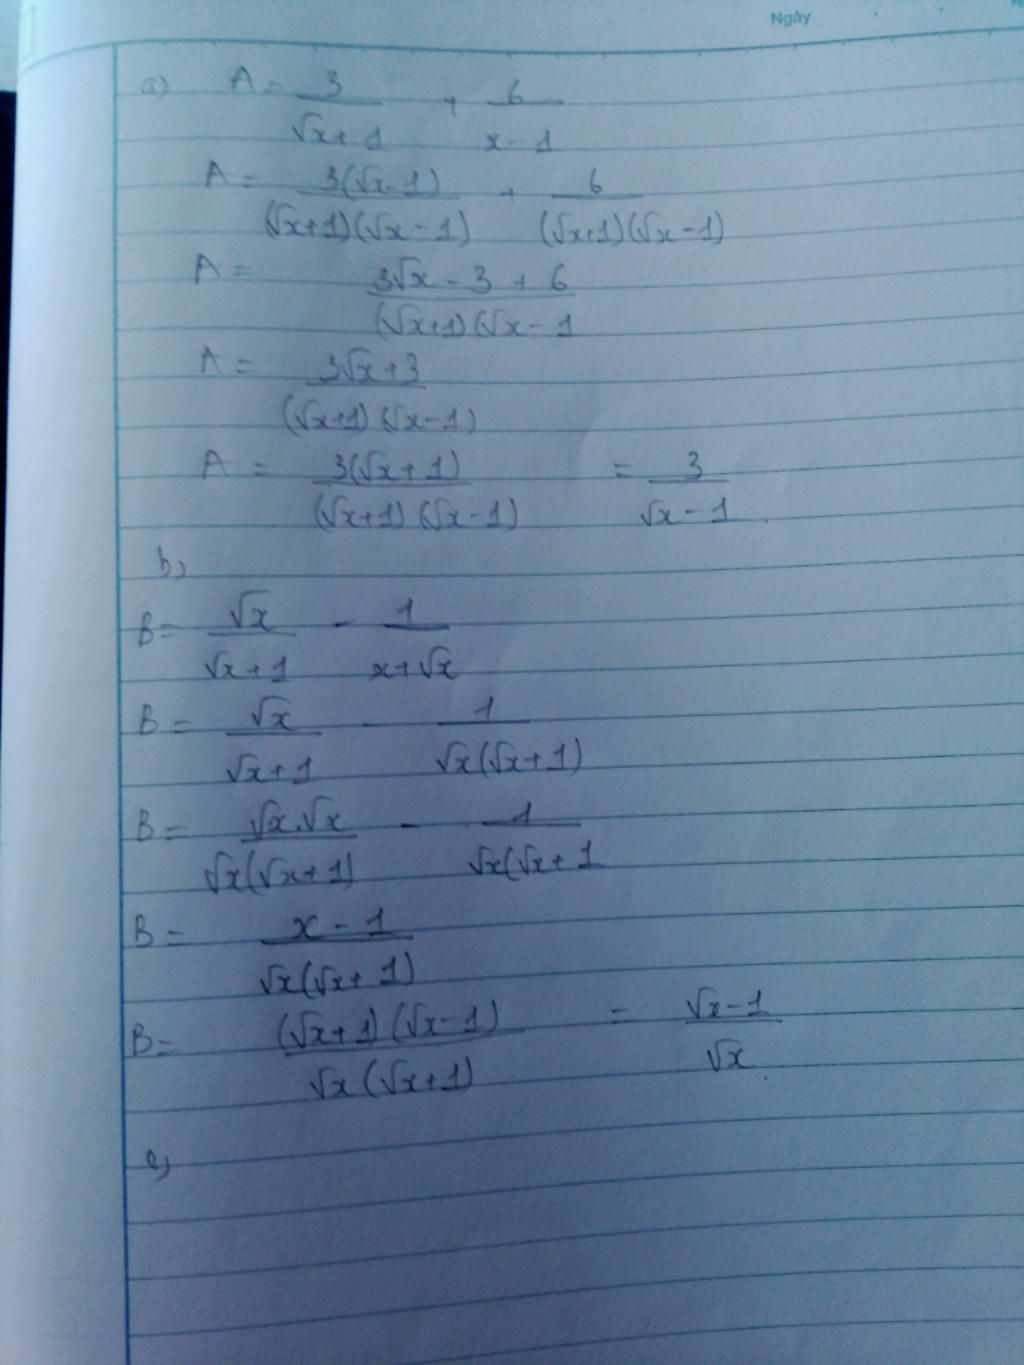 Ngày
a) A = 3/(√x+1) + 6/(x-1)
A = 3(√x-1)/((√x+1)(√x-1)) + 6/((√x+1)(√x-1))
A = (3√x - 3 + 6)/((√x+1)(√x-1
A = (3√x+3)/((√x+1)(√x-1))
A = 3(√x+1)/((√x+1)(√x-1)) = 3/(√x-1).
b)
B = √x/(√x+1) - 1/(x+√x)
B = √x/(√x+1) - 1/(√x(√x+1))
B = √x.√x/(√x(√x+1)) - 1/(√x(√x+1
B = (x-1)/(√x(√x+1))
B = (√x+1)(√x-1)/(√x(√x+1)) = (√x-1)/√x.
c)